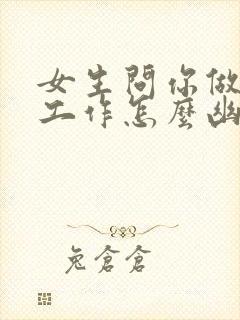 女生問你做
工作怎麼幽
兔倉倉